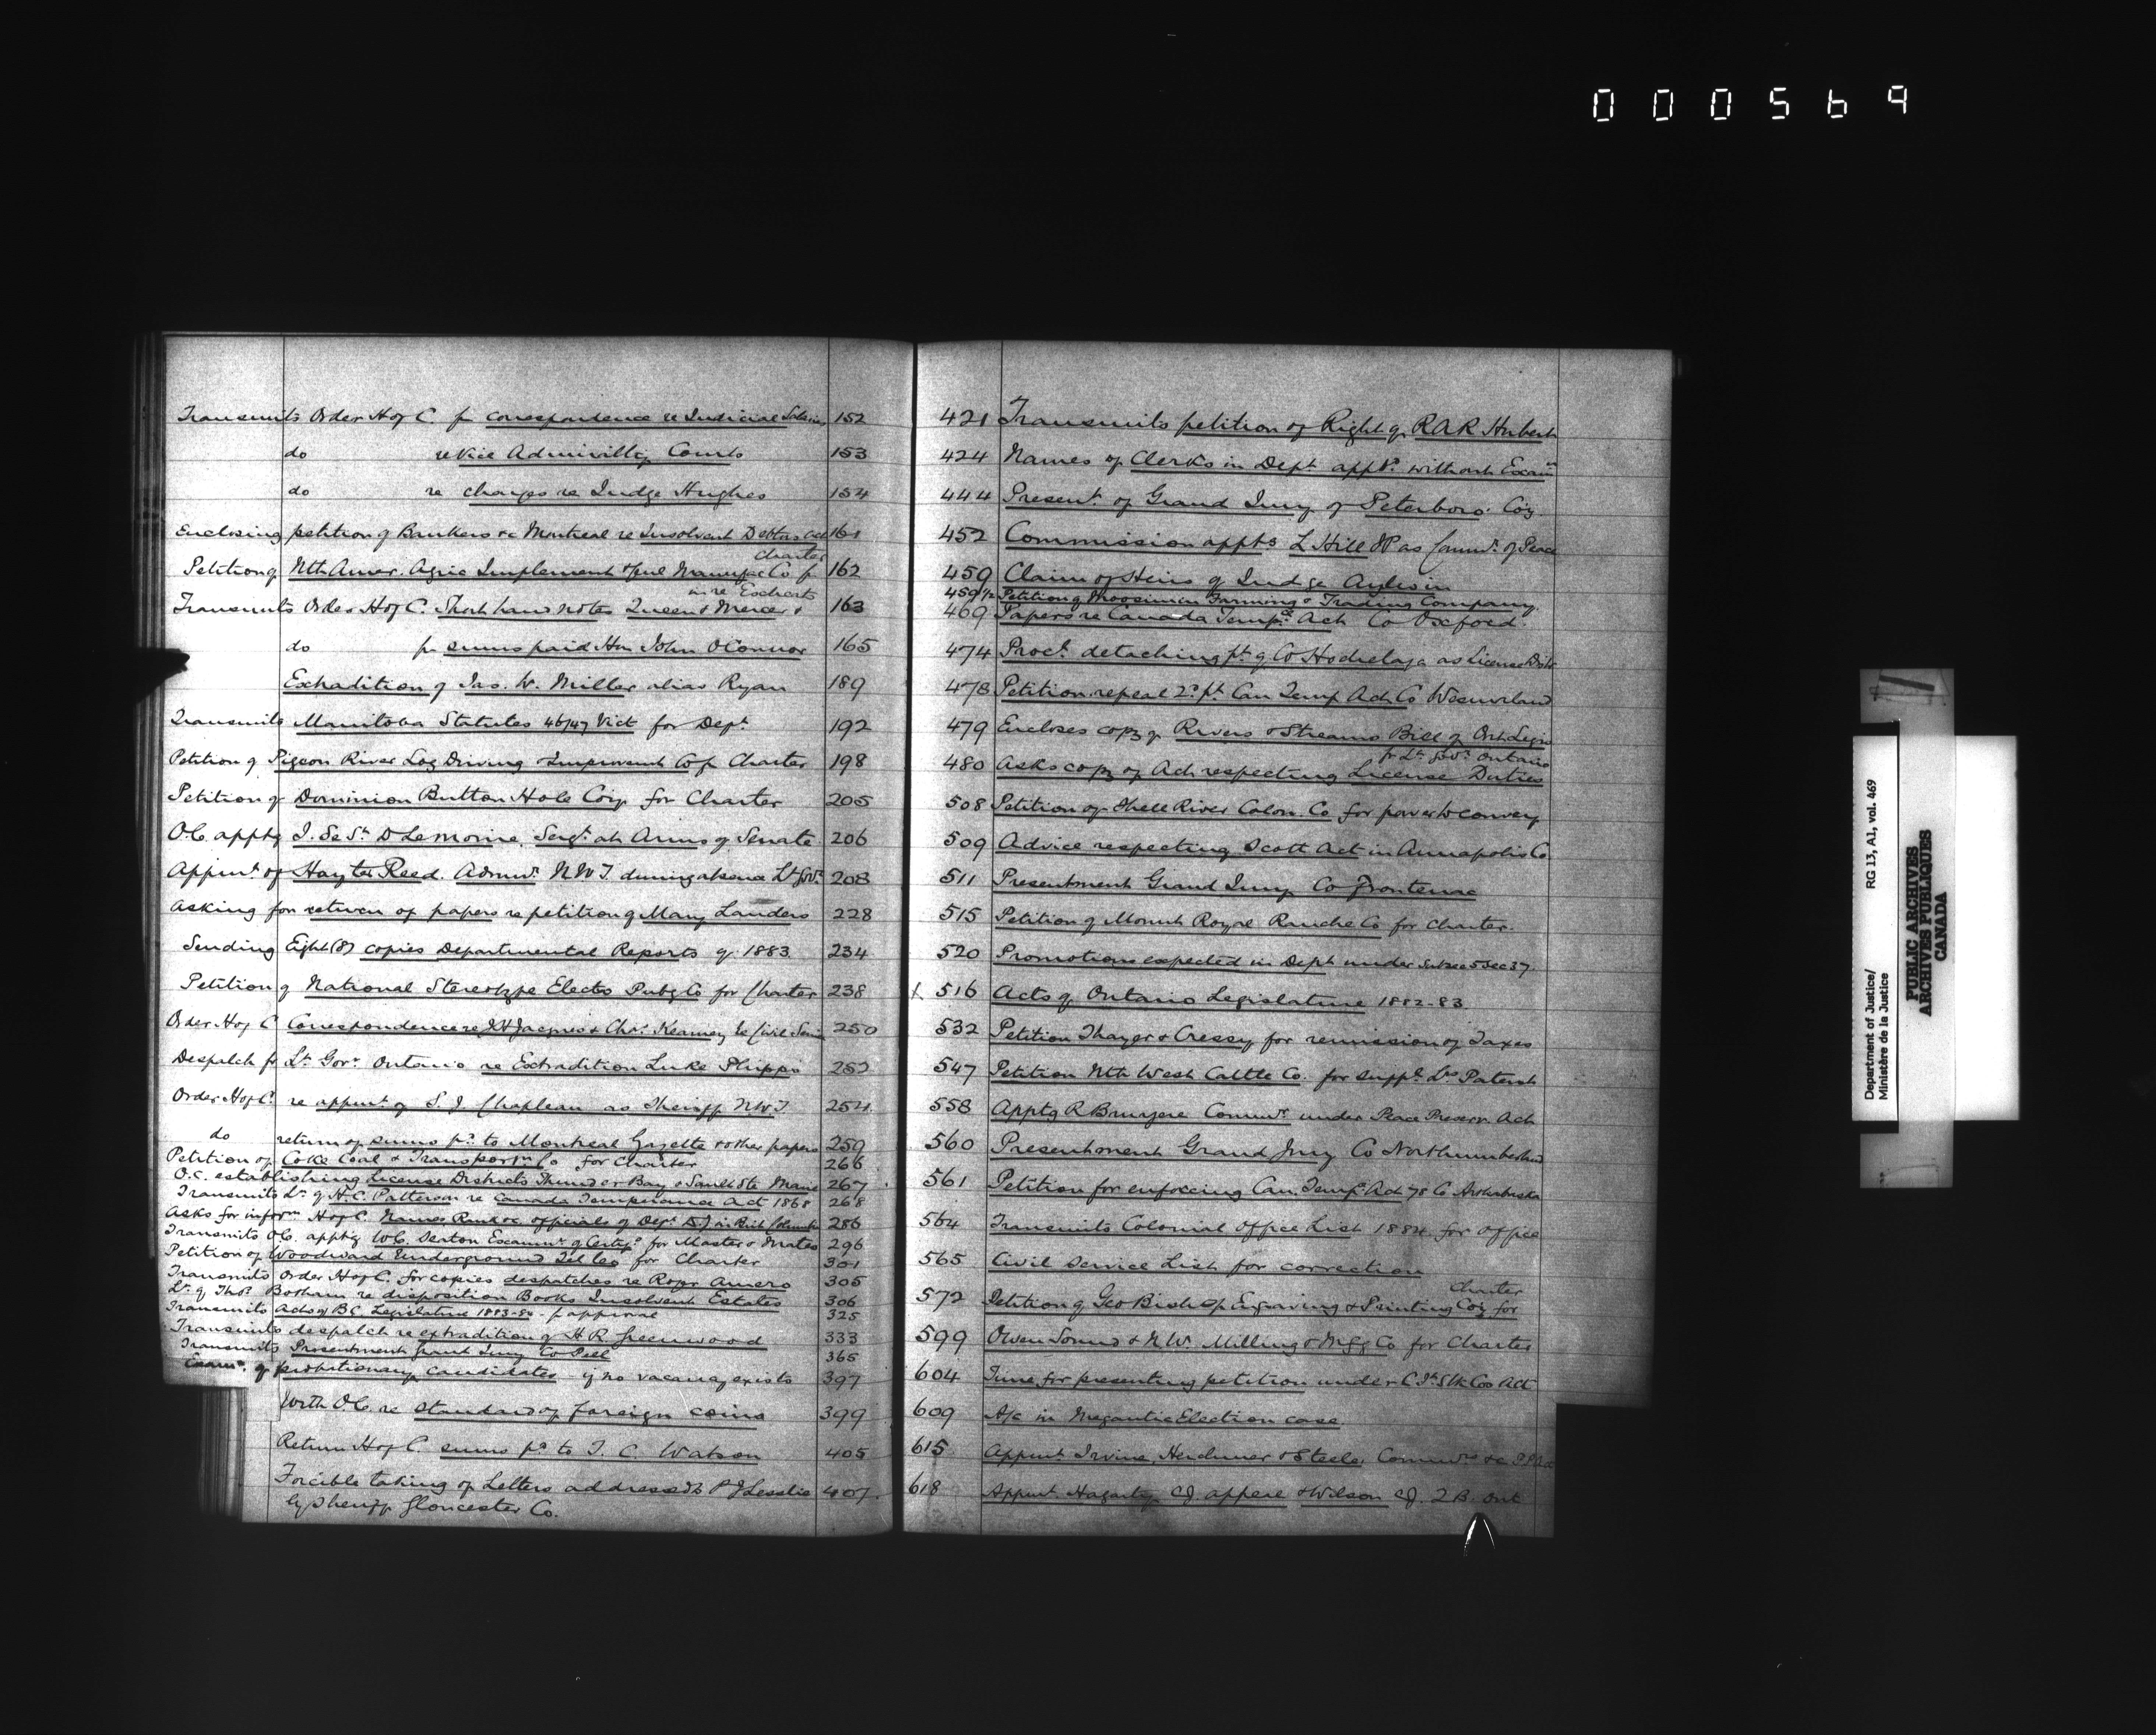 000569
Transmits Order H of C. for correspondence re Judicial Salaries 152
do re Vice Admiralty Courts 153
do re charges re Judge Hughes 154
Enclosing petition of Bankers &c Montreal re Insolvent Debtors Act 161
charter
Petition of Nth Amer. Agric Implement & Manufac Co for 162
in re Escheats
Transmits Order H of C. Short hand notes Queen & Mercer 163
do for sums paid Hon John O'Connor 165
Extradition of Jas. W. Miller alias Ryan 189
Transmits Manitoba Statutes 46/47 Vict for Dept. 192
Petition of Pigeon River Log Driving & Improvent Co for Charter 198
Petition of Dominion Button Hole Coy for Charter 205
O.C. apptg J. de St. D LeMoine, Sergt. at Arms of Senate 206
Appmt. of Hayter Reed. Admr. N.W.T. during absence Lt Govr. 208
Asking for return of papers re petition of Mary Landers 228
Sending Eight (8) copies Departmental Reports of 1883 234
Petition of National Stereotype Electo Pubg Co for Charter 238
Order H of C Correspondence re Jacques & Chas. Kearney Civil Servi 250
Despatch fr Lt Govr. Ontario re Extradition Luke Phipps 252
Order H of C. re appmt. of S. J. Chapleau as Sheriff N.W.T 254
do return of sums pd. to Montreal Gazette & other papers 259
Petition of Coke Coal & Transportn Co for Charter 266
O.C. establishing License Districts Thunder Bay & Sault Ste Marie 267
Transmits Lr. of H.C. Patterson re Canada Temperance Act 1868 268
Asks for inform. H of C. Names Rank &c officials of Dept. of J in Brit Columbia 286
Transmits O.C. apptg W.C. Seaton Examr. of Certifs for Master & Mates 296
Petition of Woodward Underground Tel Co for Charter 301
Transmits Order H of C. for copies despatches re Roger Amero 305
Lr. of Thos. Botham re disposition Books Insolvent Estates 306
Transmits Acts of B.C. Legislature 1883-84 for approval 325
Transmits despatch re extradition of H.R. Greenwood 333
Transmits Presentment Grand Jury Co Peel 365
Examn. of probationary candidates if no vacancy exists 397
With O.C. re standard of foreign coins 399
Return H of C. sums pd to J. C. Watson 405
Forcible taking of Letters addressed to P J Leslie 407
by Sheriff Gloucester Co.
421 Transmits petition of Right of R A R Hubert
424 Names of Clerks in Dept. apptd. without Examn
444 Present. of Grand Jury of Peterboro' Coy.
452 Commission appts L Hill JP as Commr. of Peace
459 Claim of Heirs of Judge Aylwin
459½ Petition of Moosimin Farming & Trading Company
469 Papers re Canada Temp. Act Co Oxford.
474 Procl. detaching pt. of Co Hochelaga as License Distr
478 Petition repeal 2d. pt. Can Temp Act Co Westmorland
479 Encloses copy of Rivers & Streams Bill of Ont Legis
fr Lt Govr. Ontario
480 Asks copy of Act respecting License Duties
508 Petition of Shell River Colon. Co for power to convey
509 Advice respecting Scott Act in Annapolis Co
511 Presentment Grand Jury Co Frontenac
515 Petition of Mount Royal Ranche Co for Charter.
520 Promotions expected in Dept under Subsec 5 Sec 37
516 Acts of Ontario Legislature 1882-83
532 Petition Thayer & Cressy for remission of Taxes
547 Petition Nth West Cattle Co. for suppl. Lrs Patent
558 Apptg R Bruyere Commr. under Peace Preserv. Act
560 Presentment Grand Jury Co Northumberland
561 Petition for enforcing Can. Temp. Act 78 Co Arthabaska
564 Transmits Colonial Office List 1884 for office
565 Civil Service List for correction
Charter
572 Petition of Geo Bishop Engraving & Printing Coy for
599 Owen Sound & N.W. Milling & Mfg Co for Charter
604 Time for presenting petition under C Jt. Stk Cos Act
609 A/c in Megantic Election case
615 Appmt. Irvine, Herchmer & Steele, Commrs &c
618 Appmt. Hagarty C.J. appeal & Wilson C.J. Q.B. Ont
Department of Justice/
Ministère de la Justice
RG 13, A1, vol. 469
PUBLIC ARCHIVES
ARCHIVES PUBLIQUES
CANADA